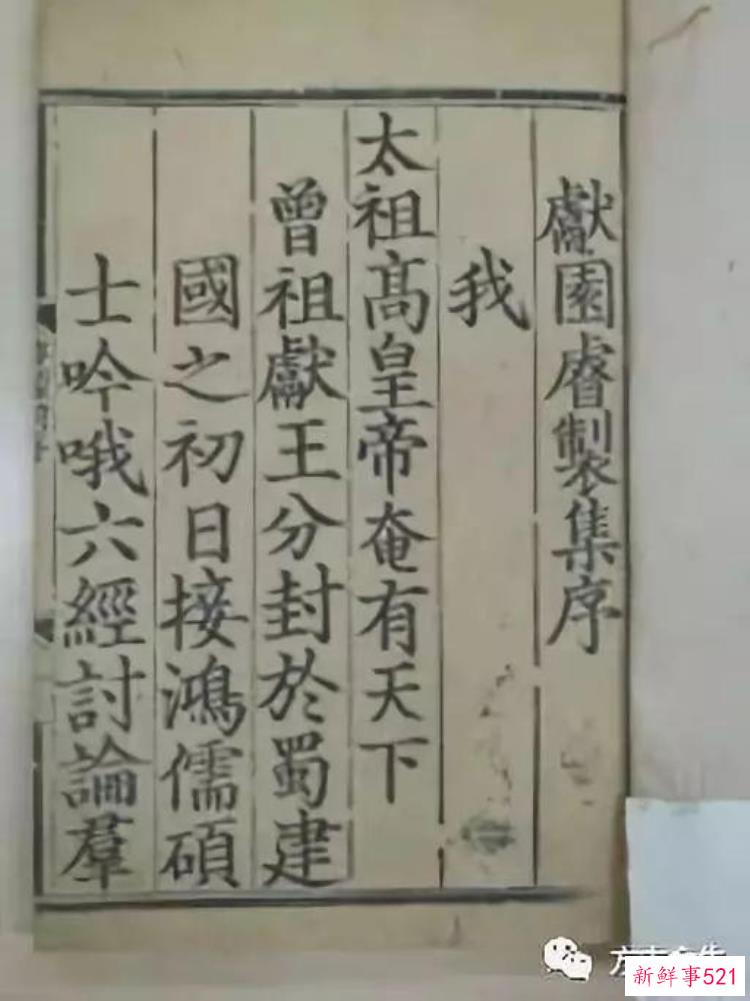 獻園睿製集序
我
太祖高皇帝奄有天下
曾祖獻王分封於蜀建
國之初日接鴻儒碩
士吟哦六經討論羣
新鮮事521